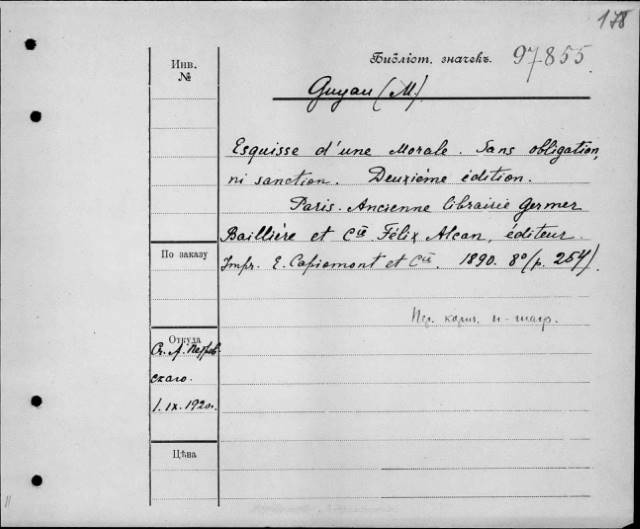 178
Библіот. значекъ. 97855.
Инв.
№
Guyau (M)
Esquisse d'une Morale. Sans obligation,
ni sanction. Deuxième édition.
Paris. Ancienne librairie Germer
Baillière et Cie Félix Alcan, éditeur.
Impr. E. Capiomont et Cie. 1890. 8° (p. 254)
По заказу
Пер. кориш. и
Откуда
От А. Петров-
скаго.
1.IX.1920г.
Цѣна